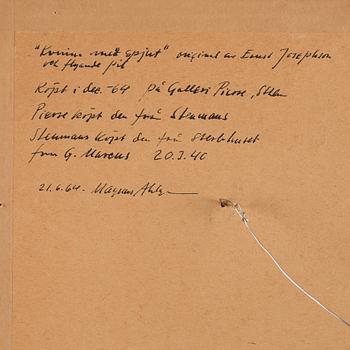 "Kvinna med spjut" original av Ernst Josephson
och flygande pil
Köpt i dec. -64 på Galleri Pierre, Sthlm
Pierre köpt den från Stenmans
Stenmans köpt den från sterbhuset
from G. Marcus 20.3.40
21.6.64. Magnus